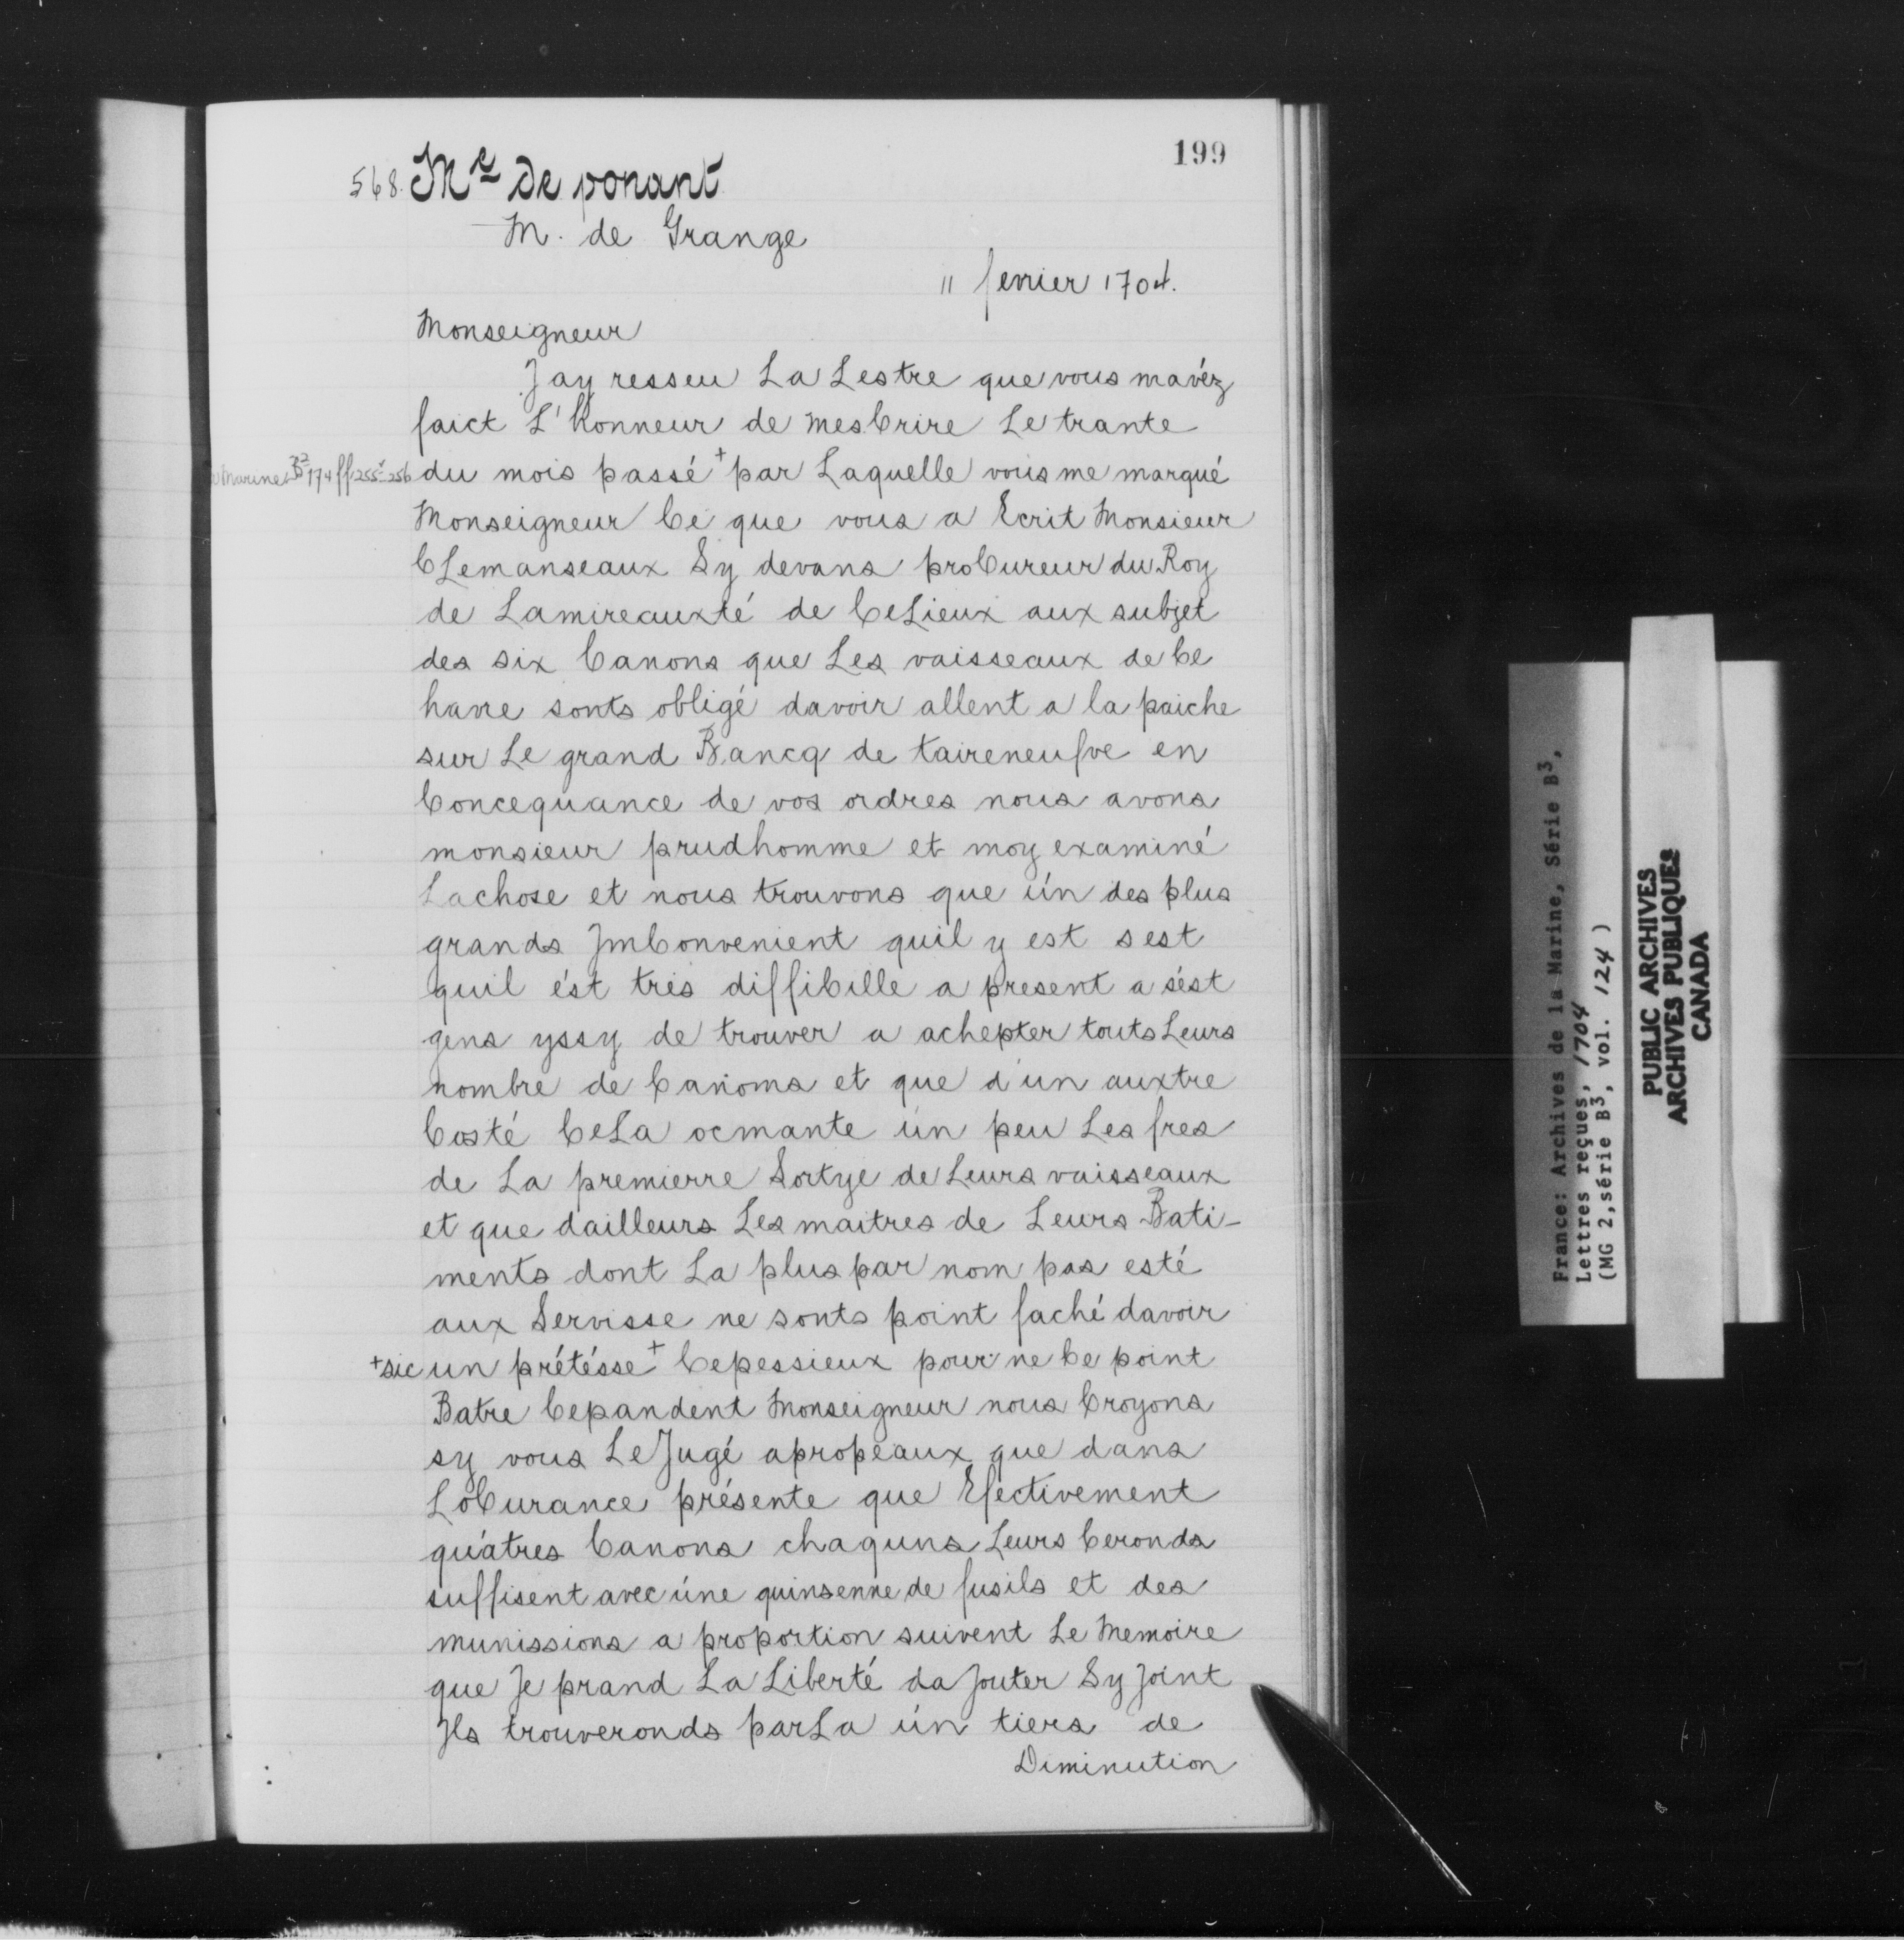 199
568. Mr de ponant
M. de Grange
11 fevrier 1704.
Monseigneur
Jay resseu La Lestre que vous mavéz
faict L'honneur de mesCrire Le trante
Marine B2 174 ff 255v-256
du mois passé + par Laquelle vous me marqué
Monseigneur Ce que vous a Ecrit Monsieur
CLemanseaux Sy devans proCureur du Roy
de Lamireauxté de CeLieux aux subjet
des six Canons que Les vaisseaux de Ce
havre sonts obligé davoir allent a la paiche
sur Le grand Bancq de taireneufve en
Concequance de vos ordres nous avons
monsieur prudhomme et moy examiné
Lachose et nous trouvons que ún des plus
grands JmConvenient quil y est sest
quil ést trés diffiCille a present a sést
gens yssy de trouver a achepter touts Leurs
nombre de Canoms et que d'un auxtre
Costé CeLa ocmante ún peu Les fres
de La premierre Sortye de Leurs vaisseaux
et que dailleurs Les maitres de Leurs Bati-
ments dont La pluspar nom pas esté
aux Servisse ne sonts point faché davoir
+sic un prétésse + Cepessieux pour ne Ce point
Batre Cepandent Monseigneur nous Croyons
sy vous Le Jugé apropeaux que dans
LoCurance présente que Efectivement
quátres Canons chaquns Leurs Ceronds
suffisent avec úne quinsenne de fusils et des
munissions a proportion suivent Le Memoire
que Je prand La Liberté da Jouter Sy Joint
Jls trouveronds parLa ún tiers de
Diminution
France: Archives de la Marine, Série B3,
Lettres reçues, 1704
(MG 2, série B3, vol. 124)
PUBLIC ARCHIVES
ARCHIVES PUBLIQUES
CANADA